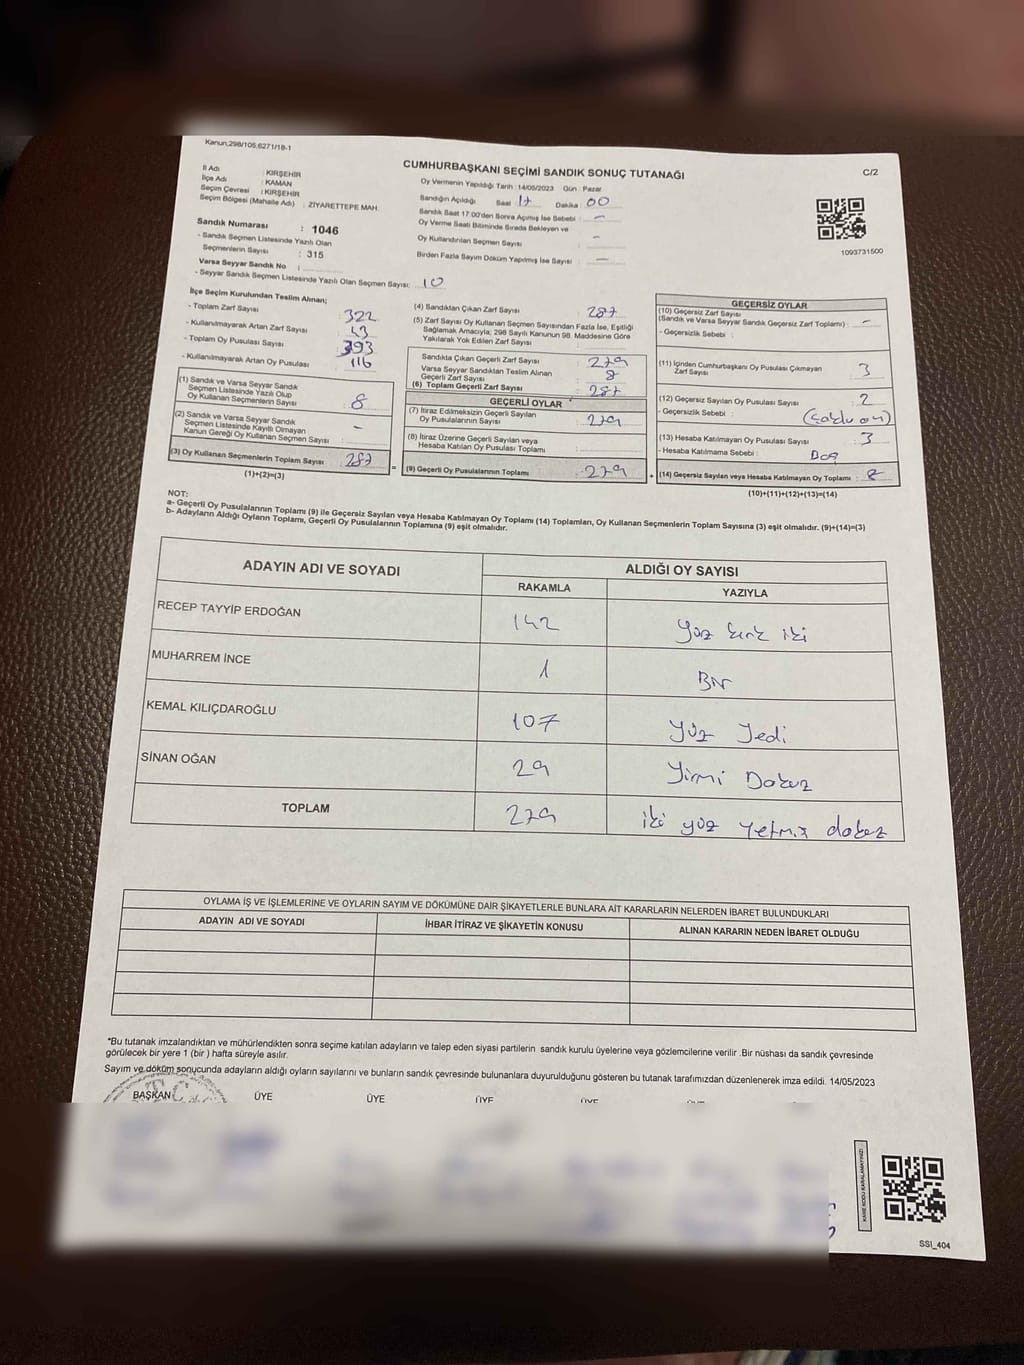 Kanun,298/105,6271/18-1
CUMHURBAŞKANI SEÇİMİ SANDIK SONUÇ TUTANAĞI
C/2
İl Adı : KIRŞEHİR
İlçe Adı : KAMAN
Seçim Çevresi : KIRŞEHİR
Seçim Bölgesi (Mahalle Adı) : ZİYARETTEPE MAH.
Oy Vermenin Yapıldığı Tarih :14/05/2023 Gün : Pazar
Sandığın Açıldığı Saat : 17 Dakika : 00
Sandık Saat 17:00'den Sonra Açılmış İse Sebebi : -
Oy Verme Saati Bitiminde Sırada Bekleyen ve
Oy Kullandırılan Seçmen Sayısı : -
Birden Fazla Sayım Döküm Yapılmış İse Sayısı : -
1093731500
Sandık Numarası : 1046
- Sandık Seçmen Listesinde Yazılı Olan
Seçmenlerin Sayısı : 315
Varsa Seyyar Sandık No :
- Seyyar Sandık Seçmen Listesinde Yazılı Olan Seçmen Sayısı: 10
İlçe Seçim Kurulundan Teslim Alınan;
- Toplam Zarf Sayısı : 322
- Kullanılmayarak Artan Zarf Sayısı : 43
- Toplam Oy Pusulası Sayısı : 393
- Kullanılmayarak Artan Oy Pusulası : 116
(1) Sandık ve Varsa Seyyar Sandık
Seçmen Listesinde Yazılı Olup
Oy Kullanan Seçmenlerin Sayısı : 8
(2) Sandık ve Varsa Seyyar Sandık
Seçmen Listesinde Kayıtlı Olmayan
Kanun Gereği Oy Kullanan Seçmen Sayısı : -
(3) Oy Kullanan Seçmenlerin Toplam Sayısı : 287
(1)+(2)=(3)
(4) Sandıktan Çıkan Zarf Sayısı : 287
(5) Zarf Sayısı Oy Kullanan Seçmen Sayısından Fazla İse, Eşitliği
Sağlamak Amacıyla; 298 Sayılı Kanunun 98. Maddesine Göre
Yakılarak Yok Edilen Zarf Sayısı :
Sandıkta Çıkan Geçerli Zarf Sayısı : 279
Varsa Seyyar Sandıktan Teslim Alınan
Geçerli Zarf Sayısı : 8
(6) Toplam Geçerli Zarf Sayısı : 287
GEÇERLİ OYLAR
(7) İtiraz Edilmeksizin Geçerli Sayılan
Oy Pusulalarının Sayısı : 279
(8) İtiraz Üzerine Geçerli Sayılan veya
Hesaba Katılan Oy Pusulası Toplamı :
= (9) Geçerli Oy Pusulalarının Toplamı : 279 +
GEÇERSİZ OYLAR
(10) Geçersiz Zarf Sayısı
(Sandık ve Varsa Seyyar Sandık Geçersiz Zarf Toplamı) : -
- Geçersizlik Sebebi :
(11) İçinden Cumhurbaşkanı Oy Pusulası Çıkmayan
Zarf Sayısı : 3
(12) Geçersiz Sayılan Oy Pusulası Sayısı : 2
- Geçersizlik Sebebi :
(13) Hesaba Katılmayan Oy Pusulası Sayısı : 3
- Hesaba Katılmama Sebebi : Boş
(14) Geçersiz Sayılan veya Hesaba Katılmayan Oy Toplamı : 8
(10)+(11)+(12)+(13)=(14)
NOT:
a- Geçerli Oy Pusulalarının Toplamı (9) ile Geçersiz Sayılan veya Hesaba Katılmayan Oy Toplamı (14) Toplamları, Oy Kullanan Seçmenlerin Toplam Sayısına (3) eşit olmalıdır. (9)+(14)=(3)
b- Adayların Aldığı Oyların Toplamı, Geçerli Oy Pusulalarının Toplamına (9) eşit olmalıdır.
ADAYIN ADI VE SOYADI
ALDIĞI OY SAYISI
RAKAMLA YAZIYLA
RECEP TAYYİP ERDOĞAN 142 Yüz kırk iki
MUHARREM İNCE 1 Bir
KEMAL KILIÇDAROĞLU 107 Yüz Yedi
SİNAN OĞAN 29 Yirmi Dokuz
TOPLAM 279 iki yüz yetmiş dokuz
OYLAMA İŞ VE İŞLEMLERİNE VE OYLARIN SAYIM VE DÖKÜMÜNE DAİR ŞİKAYETLERLE BUNLARA AİT KARARLARIN NELERDEN İBARET BULUNDUKLARI
ADAYIN ADI VE SOYADI İHBAR İTİRAZ VE ŞİKAYETİN KONUSU ALINAN KARARIN NEDEN İBARET OLDUĞU
*Bu tutanak imzalandıktan ve mühürlendikten sonra seçime katılan adayların ve talep eden siyasi partilerin sandık kurulu üyelerine veya gözlemcilerine verilir .Bir nüshası da sandık çevresinde
görülecek bir yere 1 (bir ) hafta süreyle asılır.
Sayım ve döküm sonucunda adayların aldığı oyların sayılarını ve bunların sandık çevresinde bulunanlara duyurulduğunu gösteren bu tutanak tarafımızdan düzenlenerek imza edildi. 14/05/2023
BAŞKAN ÜYE ÜYE ÜYE ÜYE ÜYE
KARE KODU KARALAMAYINIZ!
SSI_404